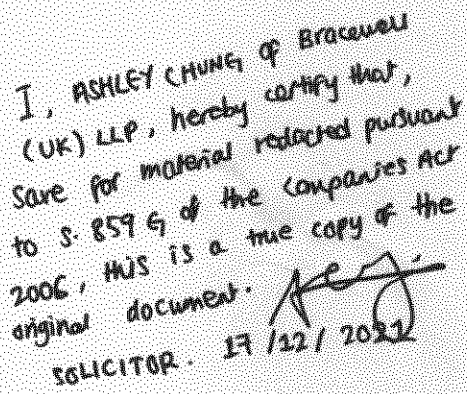 I, ASHLEY CHUNG of Bracewell
(UK) LLP, hereby certify that,
save for material redacted pursuant
to s. 859 G of the Companies Act
2006, this is a true copy of the
original document.
SOLICITOR. 17/12/2021